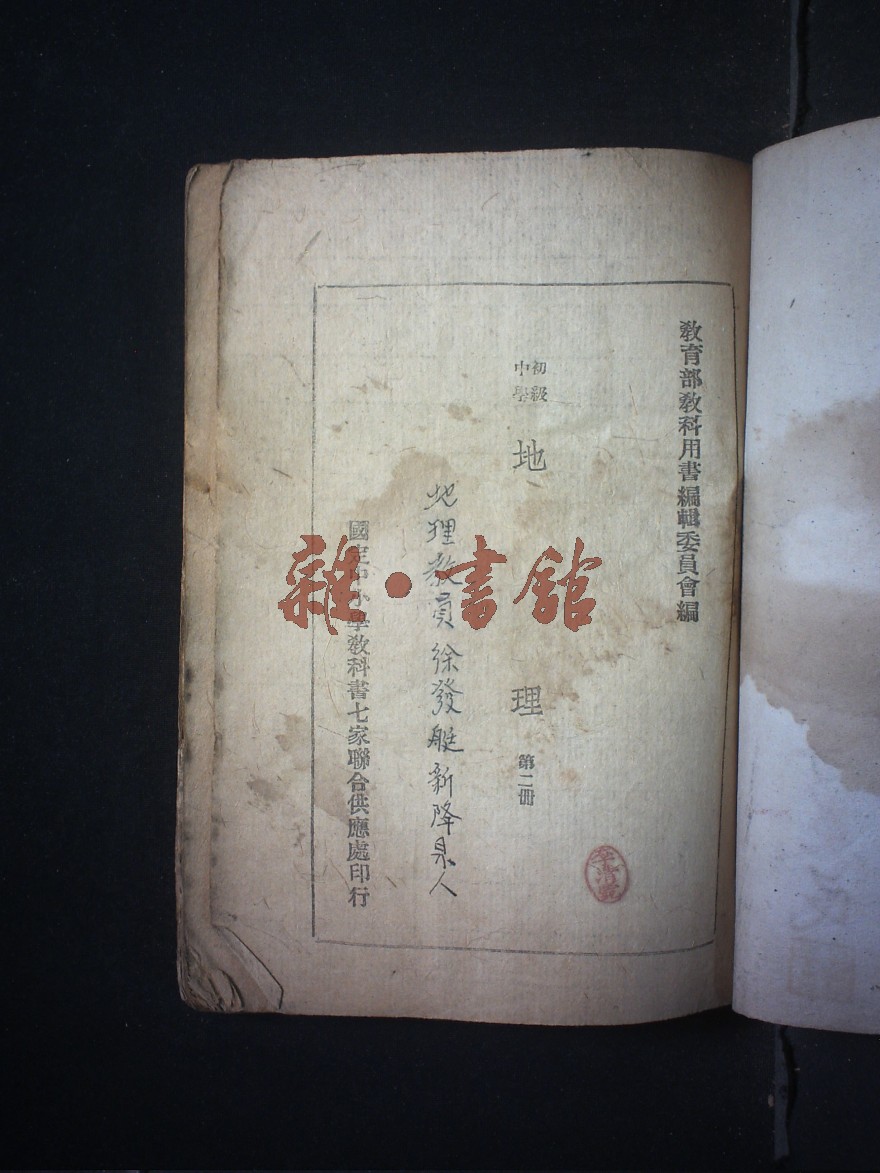 教育部教科用書編輯委員會編
初級
中學
地理 第二冊
地狸教員徐發艇新降县人
國定中小學教科書七家聯合供應處印行
雜·書館